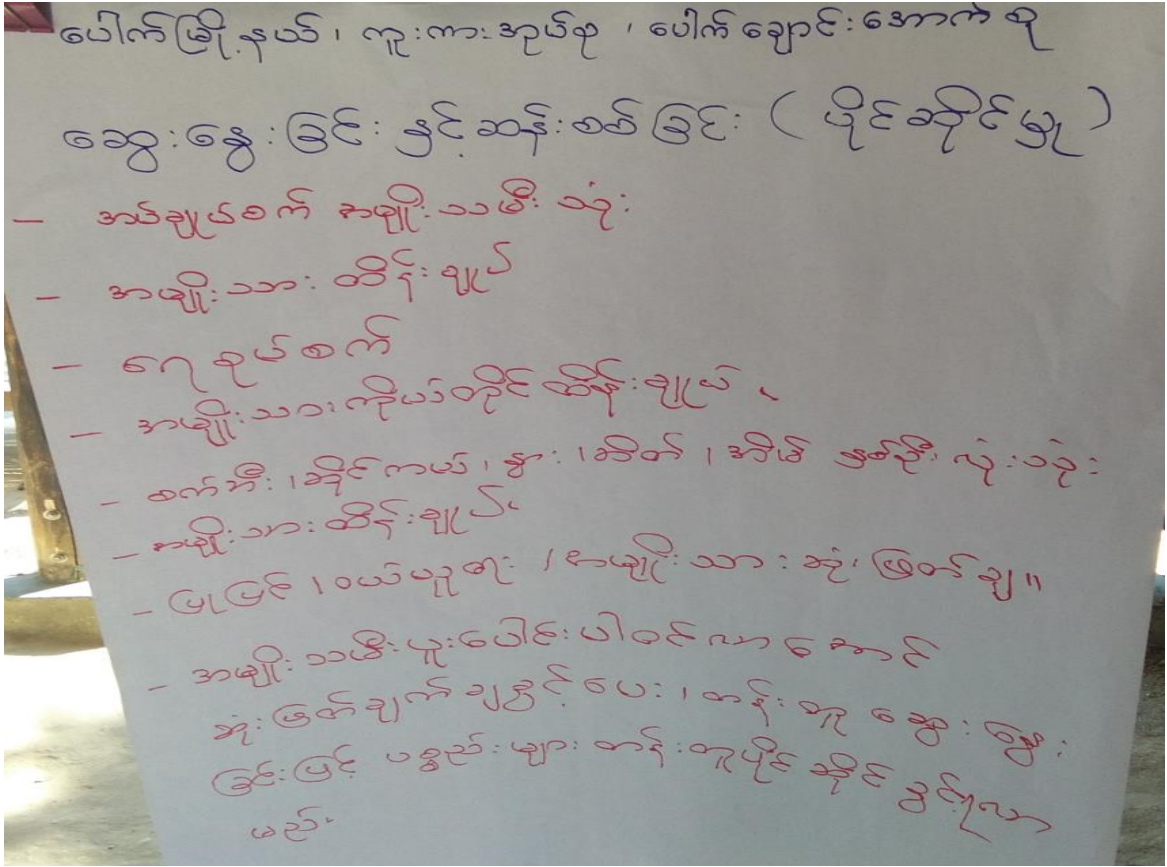 ပေါက်မြို့နယ်၊ ကူးကားအုပ်စု ၊ ပေါက်ချောင်းအောက်စု
ဆွေးနွေးခြင်း နှင့်ဆန်းစစ်ခြင်း ( ပိုင်ဆိုင်မှု )
- အပ်ချုပ်စက် အမျိုးသမီး သုံး
- အမျိုးသား ထိန်းချုပ်
- ရေစုပ်စက်
- အမျိုးသားကိုယ်တိုင်ထိန်းချုပ်
- စက်ဘီး ၊ဆိုင်ကယ်၊ နွား ၊ဆိတ် ၊ အိမ် နှစ်ဦး လုံးသုံး
- အမျိုးသား ထိန်းချုပ်
- ပြုပြင် ၊ ဝယ်ယူတုး ၊ အမျိုးသား ဆုံးဖြတ်ချ။
- အမျိုးသမီးပူးပေါင်းပါဝင်လာအောင်
ဆုံးဖြတ်ချက်ချခွင့်ပေး ၊ တန်းတူ ဆွေးနွေး
ခြင်းဖြင့် ပစ္စည်းများ တန်းတူပိုင်ဆိုင်ခွင့်ရလာ
မည်။